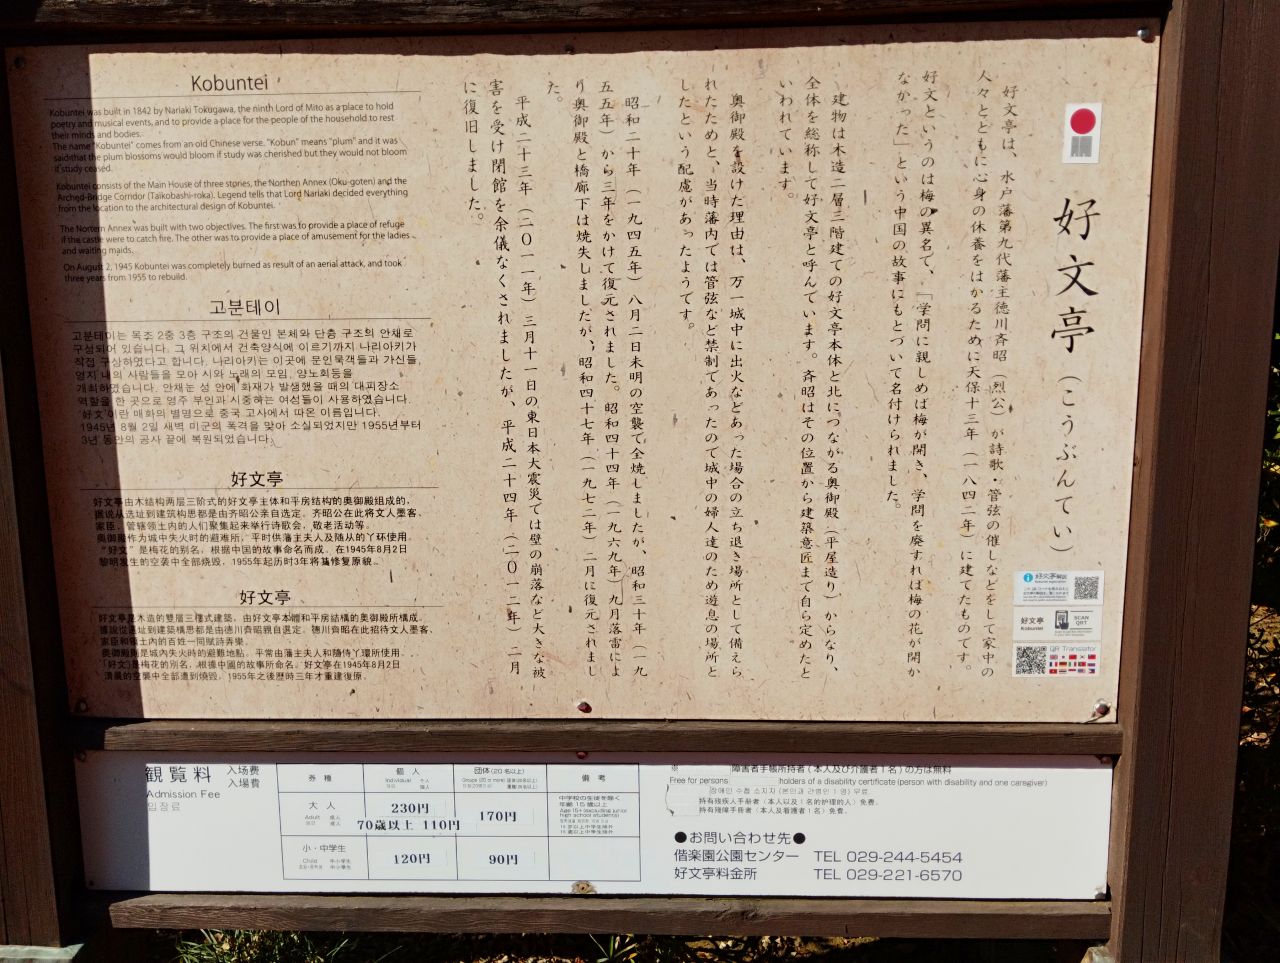 Kobuntei
Kobuntei was built in 1842 by Nariaki Tokugawa, the ninth Lord of Mito as a place to hold
poetry and musical events, and to provide a place for the people of the household to rest
their minds and bodies.
The name "Kobuntei" comes from an old Chinese verse. "Kobun" means "plum" and it was
said that the plum blossoms would bloom if study was cherished but they would not bloom
if study ceased.
Kobuntei consists of the Main House of three stories, the Northen Annex (Oku-goten) and the
Arched-Bridge Corridor (Taikobashi-roka). Legend tells that Lord Nariaki decided everything
from the location to the architectural design of Kobuntei.
The Nortern Annex was built with two objectives. The first was to provide a place of refuge
if the castle were to catch fire. The other was to provide a place of amusement for the ladies
and waiting maids.
On August 2, 1945 Kobuntei was completely burned as result of an aerial attack, and took
three years from 1955 to rebuild.
고분테이
고분테이는 목조 2중 3층 구조의 건물인 본체와 단층 구조의 안채로
구성되어 있습니다. 그 위치에서 건축양식에 이르기까지 나리아키가
직접 구상하였다고 합니다. 나리아키는 이곳에 문인묵객들과 가신들,
영지 내의 사람들을 모아 시와 노래의 모임, 양노회등을
개최하였습니다. 안채는 성 안에 화재가 발생했을 때의 대피장소
역할을 한 곳으로 영주 부인과 시중하는 여성들이 사용하였습니다.
"好文"이란 매화의 별명으로 중국 고사에서 따온 이름입니다.
1945년 8월 2일 새벽 미군의 폭격을 맞아 소실되었지만 1955년부터
3년 동안의 공사 끝에 복원되었습니다.
好文亭
好文亭由木结构两层三阶式的好文亭主体和平房结构的奥御殿组成的，
据说从选址到建筑构思都是由齐昭公亲自选定。齐昭公在此将文人墨客、
家臣、管辖领土内的人们聚集起来举行诗歌会，敬老活动等。
奥御殿作为城中失火时的避难所，平时供藩主夫人及随从的丫环使用。
"好文"是梅花的别名，根据中国的故事命名而成。在1945年8月2日
黎明发生的空袭中全部烧毁，1955年起历时3年将其修复原貌。
好文亭
好文亭是木造的雙層三樓式建築，由好文亭本體和平房結構的奧御殿所構成。
據說從選址到建築構思都是由德川齊昭親自選定。德川齊昭在此招待文人墨客、
家臣和領土內的百姓一同賦詩弄樂。
奧御殿則是城內失火時的避難地點，平常由藩主夫人和隨侍丫環所使用。
「好文」是梅花的別名，根據中國的故事所命名。好文亭在1945年8月2日
清晨的空襲中全部遭到燒毀，1955年之後歷時三年才重建復原。
好文亭（こうぶんてい）
好文亭は、水戸藩第九代藩主徳川斉昭（烈公）が詩歌・管弦の催しなどをして家中の
人々とともに心身の休養をはかるために天保十三年（一八四二年）に建てたものです。
好文というのは梅の異名で、「学問に親しめば梅が開き、学問を廃すれば梅の花が開か
なかった」という中国の故事にもとづいて名付けられました。
建物は木造二層三階建ての好文亭本体と北につながる奥御殿（平屋造り）からなり、
全体を総称して好文亭と呼んでいます。斉昭はその位置から建築意匠まで自ら定めたと
いわれています。
奥御殿を設けた理由は、万一城中に出火などあった場合の立ち退き場所として備えら
れたためと、当時藩内では管弦など禁制であったので城中の婦人達のため遊息の場所と
したという配慮があったようです。
昭和二十年（一九四五年）八月二日未明の空襲で全焼しましたが、昭和三十年（一九
五五年）から三年をかけて復元されました。昭和四十四年（一九六九年）九月落雷によ
り奥御殿と橋廊下は焼失しましたが、昭和四十七年（一九七二年）二月に復元されまし
た。
平成二十三年（二〇一一年）三月十一日の東日本大震災では壁の崩落など大きな被
害を受け閉館を余儀なくされましたが、平成二十四年（二〇一二年）二月
に復旧しました。
好文亭解説
好文亭
Kobuntei
SCAN
QR Translator
観覧料 入场费
Admission Fee 入場費
입장료
券種 個人 Individual 団体(20名以上) Groups (20 or more) 備考
大人 Adult 230円 170円
70歳以上 110円
中学校の生徒を除く
年齢15歳以上
Age 15+ (excluding junior
high school students)
小・中学生 Child 120円 90円
※ 障害者手帳所持者(本人及び介護者1名)の方は無料
Free for persons holders of a disability certificate (person with disability and one caregiver)
장애인 수첩 소지자 (본인과 간병인 1명) 무료.
持有残疾人手册者（本人以及1名的护理的人）免费.
持有殘障手冊者（本人及看護者1名）免費.
●お問い合わせ先●
偕楽園公園センター TEL 029-244-5454
好文亭料金所 TEL 029-221-6570